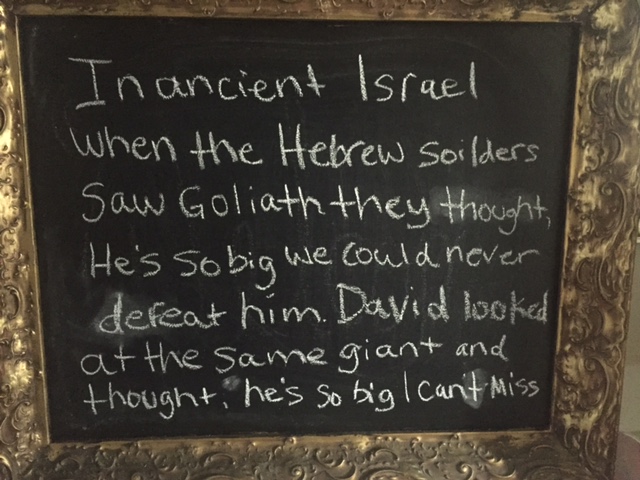 In ancient Israel
when the Hebrew soilders
Saw Goliath they thought,
He's so big we could never
defeat him. David looked
at the same giant and
thought, he's so big I can't Miss